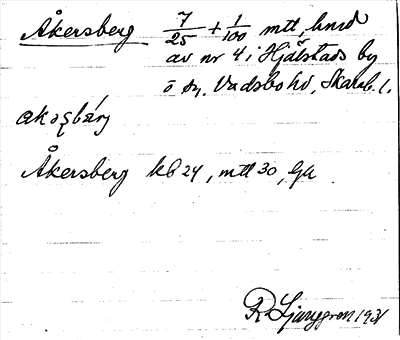 Åkersberg 7/25 + 1/100 mtl, hmd
av nr 4 i Hjälstads by
ö sn, Vadsbo hd, Skarab. l.
Åkersberg kb 24, mtl 30, GA
R Ljunggren 1931